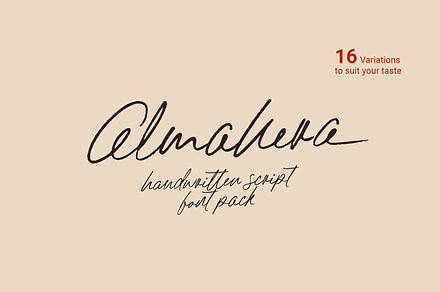 16 Variations
to suit your taste
Almahera
handwritten script
font pack